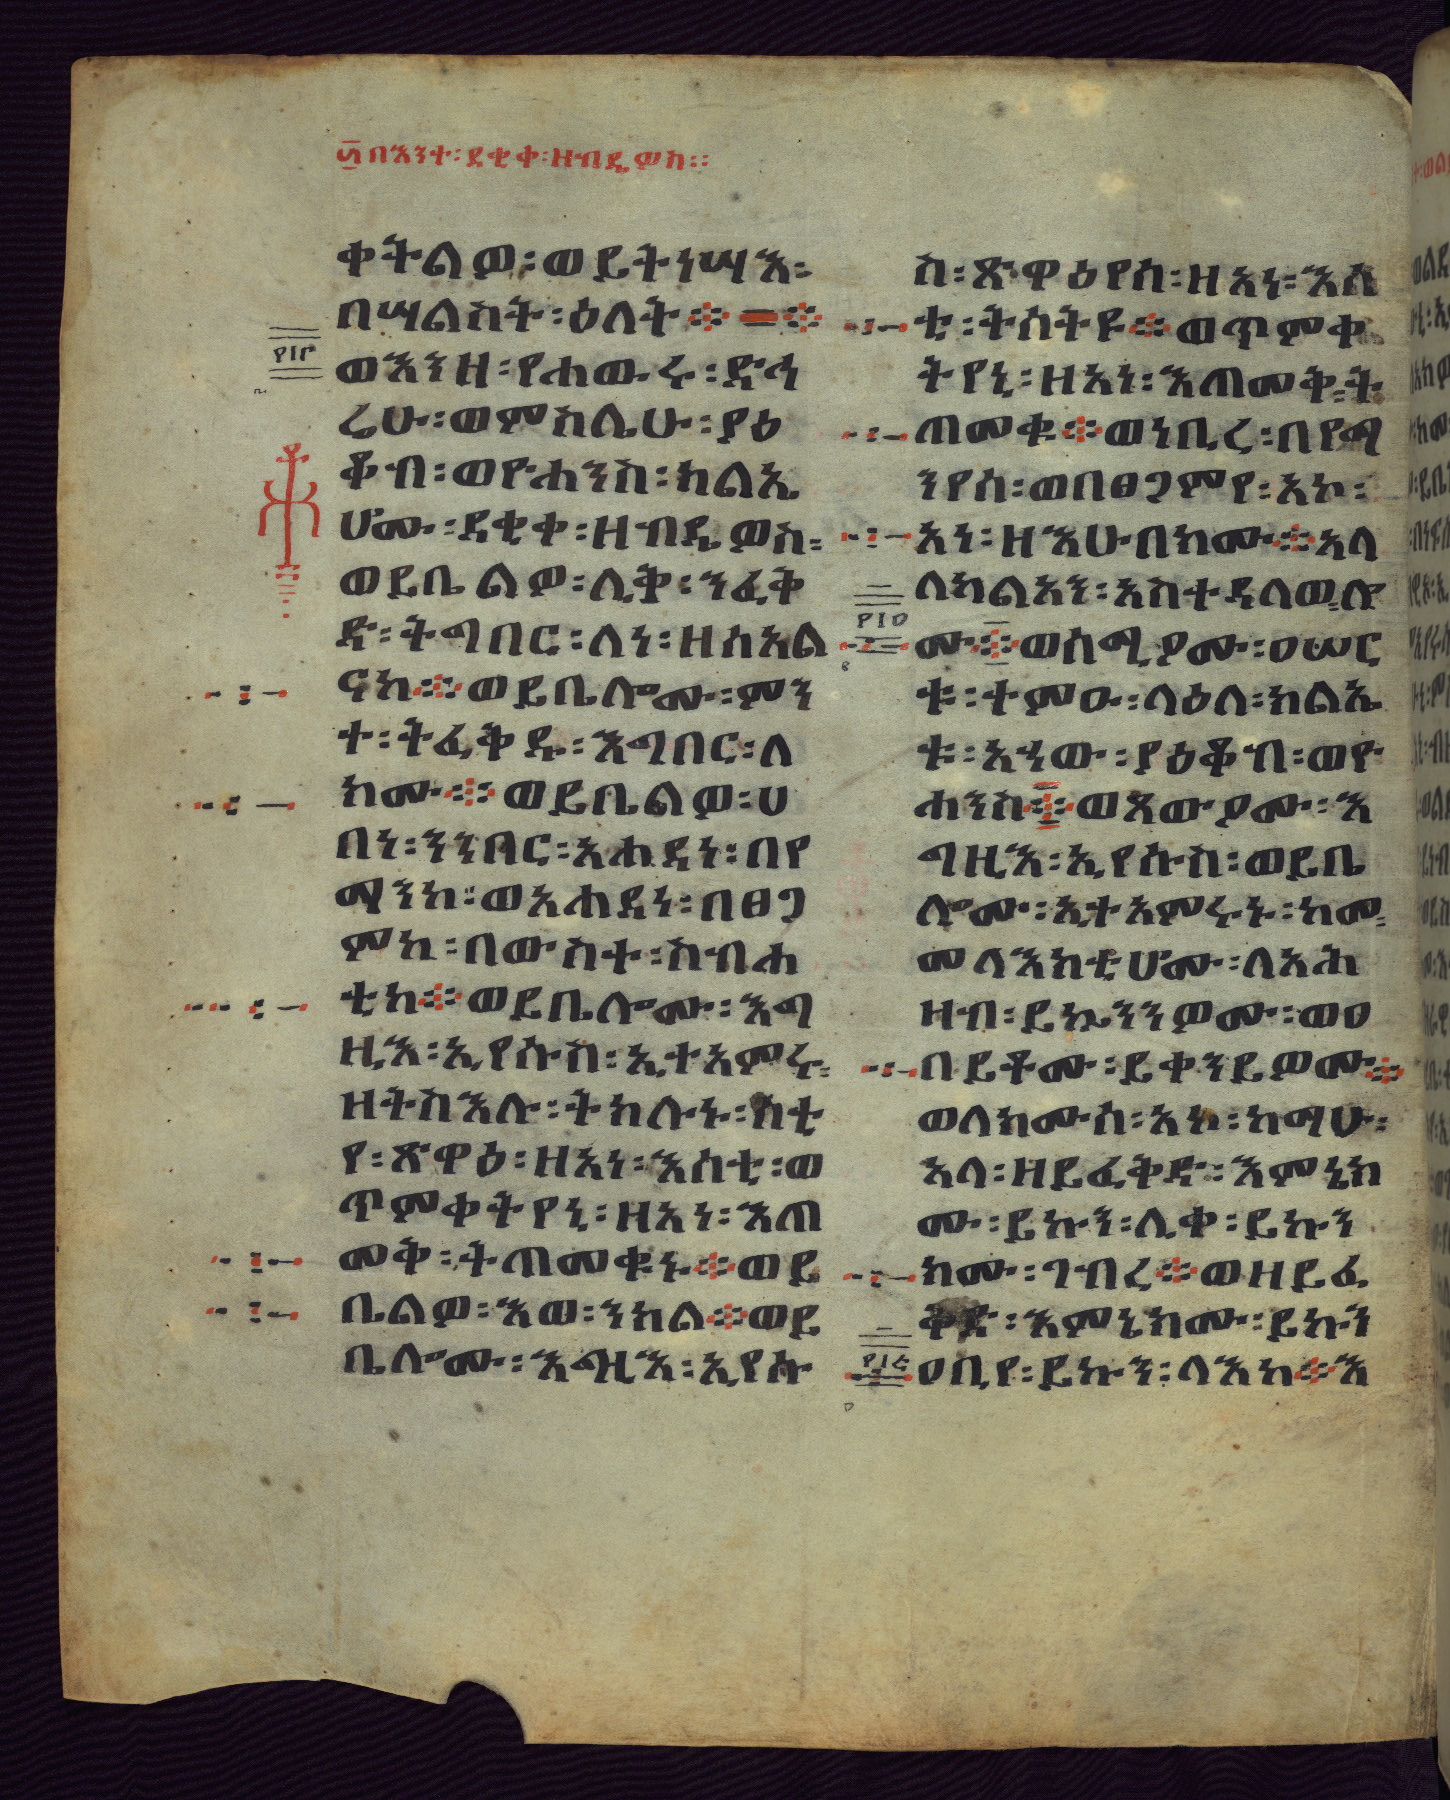 ፴በእንተ፡ደቂቀ፡ዘብዴዎስ፡፡
ቀትልዎ፡ወይትነሣእ፡
በሣልስት፡ዕለት፨=፨
ወእንዘ፡የሐውሩ፡ድኅ
ሬሁ፡ወምስሌሁ፡ያዕ
ቆብ፡ወዮሐንስ፡ክልኤ
ሆሙ፡ደቂቀ፡ዘብዴዎስ፡
ወይቤልዎ፡ሊቅ፡ንፈቅ
ድ፡ትግበር፡ለነ፡ዘሰአል
ናከ፨ወይቤሎሙ፡ምን
ተ፡ትፈቅዱ፡እግበር፡ለ
ክሙ፨ወይቤልዎ፡ሀ
በነ፡ንንበር፡አሐዱነ፡በየ
ማንከ፡ወአሐዱነ፡በፀጋ
ምከ፡በውስተ፡ስብሐ
ቲከ፨ወይቤሎሙ፡እግ
ዚእ፡ኢየሱስ፡ኢተአምሩ፡
ዘትስእሉ፡ትክሉኑ፡ሰቲ
የ፡ጽዋዕ፡ዘአነ፡እሰቲ፡ወ
ጥምቀትየኒ፡ዘአነ፡እጠ
መቅ፡ትጠመቁኑ፨ወይ
ቤልዎ፡እወ፡ንክል፨ወይ
ቤሎሙ፡እግዚእ፡ኢየሱ
ስ፡ጽዋዕየሰ፡ዘአነ፡እሰ
ቲ፡ትሰትዩ፨ወጥምቀ
ትየኒ፡ዘአነ፡እጠመቅ፡ት
ጠመቁ፨ወነቢረ፡በየማ
ንየሰ፡ወበፀጋምየ፡አኮ፡
አነ፡ዘእሁብክሙ፨አላ
ለክልአን፡አስተዳለወ፡ሎ
ሙ፨ወሰሚዖሙ፡ዐሠር
ቱ፡ተምዑ፡ላዕለ፡ክልኤ
ቱ፡አኃው፡ያዕቆብ፡ወዮ
ሐንስ፨ወጸውዖሙ፡እ
ግዚእ፡ኢየሱስ፡ወይቤ
ሎሙ፡ኢተአምሩኑ፡ከመ፡
መላእክቲሆሙ፡ለአሕ
ዛብ፡ይኴንንዎሙ፡ወዐ
በይቶሙ፡ይቀንይዎሙ፨
ወለክሙሰ፡አኮ፡ከማሁ፡
አላ፡ዘይፈቅድ፡እምኔክ
ሙ፡ይኩን፡ሊቀ፡ይኩን
ክሙ፡ገብረ፨ወዘይፈ
ቅድ፡እምኔክሙ፡ይኩን
ዐቢየ፡ይኩን፡ላእከ፨እ